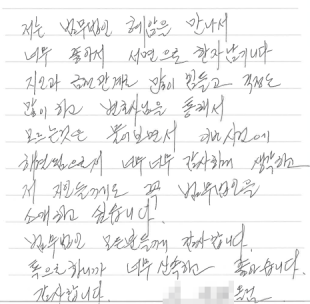 저는 법무법인 혜암을 만나서
너무 좋아서 서면으로 한자 남깁니다
지인과 금전관계로 많이 힘들고 걱정도
많이 하고 변호사님을 통해서
모르는것은 물어보면서 빠른시간에
해결됨으로서 너무너무 감사하게 생각하고
저 지인들께도 꼭 법무법인을
소개하고 싶습니다.
법무법인 모든분들께 감사합니다.
톡으로 하니까 너무 신속하고 좋았습니다.
감사합니다.